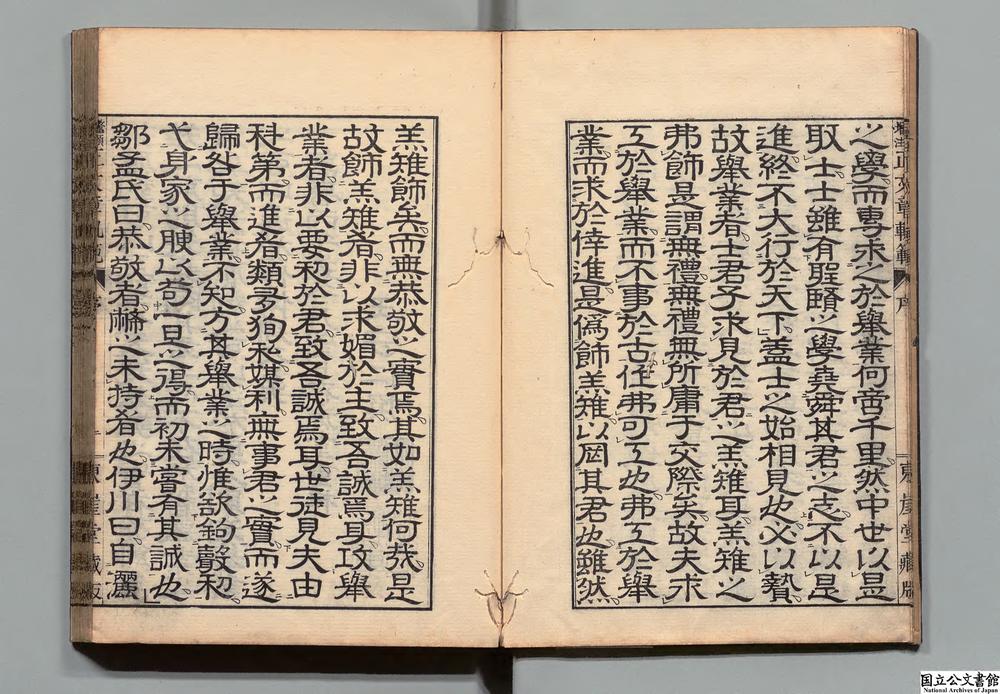 之學而專求之於舉業何啻千里然中世以是
取士士雖有聖賢之學堯舜其君之志不以是
進終不大行於天下蓋士之始相見也必以贄
故舉業者士君子求見於君之羔雉耳羔雉之
弗飾是謂無禮無禮無所庸于交際矣故夫求
工於舉業而不事於古作弗可工也弗工於舉
業而求於倖進是偽飾羔雉以罔其君也雖然
羔雉飾矣而無恭敬之實焉其如羔雉何哉是
故飾羔雉者非以求媚於主致吾誠焉耳攻舉
業者非以要利於君致吾誠焉耳世徒見夫由
科第而進者類多狥私媒利無事君之實而遂
歸咎于舉業不知方其舉業之時惟欲鉤聲利
弋身家之腴以苟一旦之得而初未嘗有其誠也
鄒孟氏曰恭敬者幣之未將者也伊川曰自灑
序
東崖堂藏版
国立公文書館
National Archives of Japan